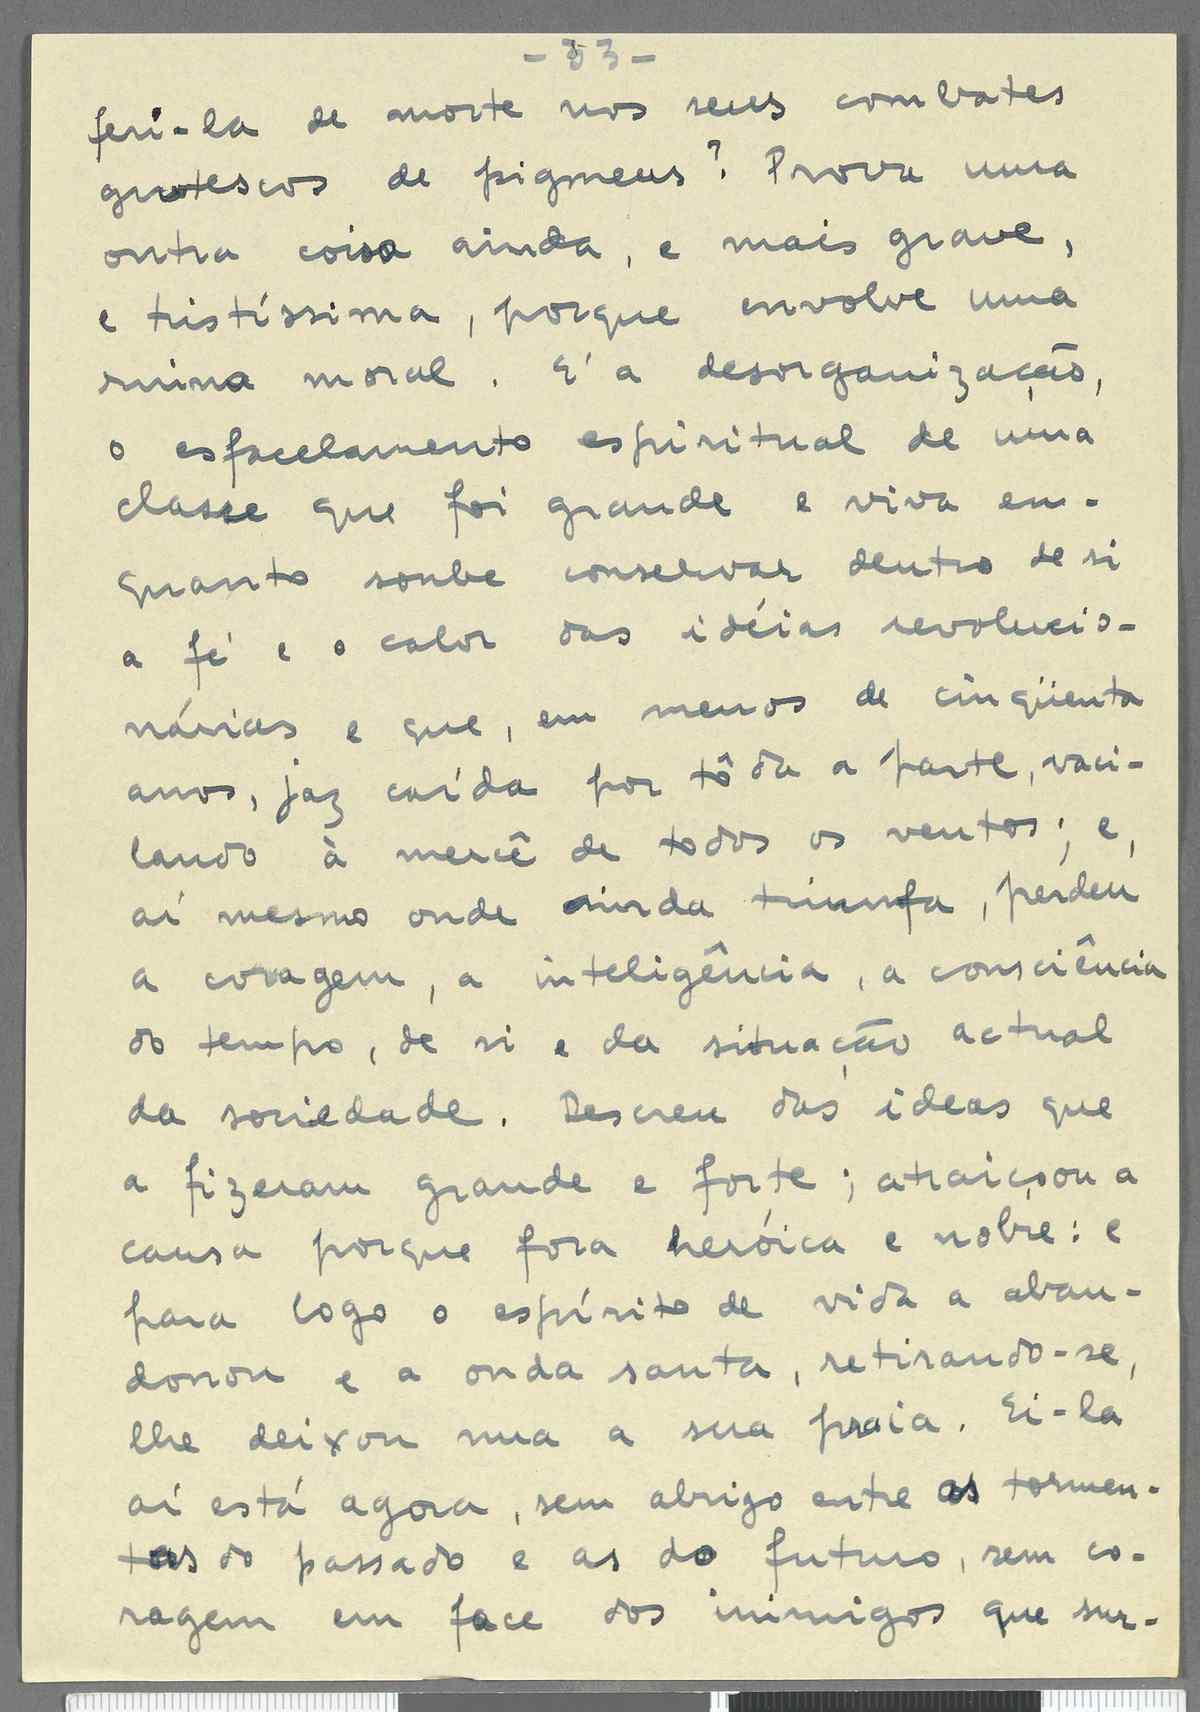 - 33 -
feri-la de morte nos seus combates
grotescos de pigmeus? Prova uma
outra coisa ainda, e mais grave,
e tristíssima, porque envolve uma
ruina moral. E' a desorganização,
o esfacelamento espiritual de uma
classe que foi grande e viva em-
quanto soube conservar dentro de si
a fé e o calor das idéias revolucio-
nárias e que, em menos de cinqüenta
anos, jaz caída por tôda a parte, vaci-
lando à mercê de todos os ventos; e,
aí mesmo onde ainda triunfa, perdeu
a coragem, a inteligência, a consciência
do tempo, de si e da situação actual
da sociedade. Descreu das ideas que
a fizeram grande e forte; atraiçoou a
causa porque fora heróica e nobre: e
para logo o espírito de vida a aban-
donou e a onda santa, retirando-se,
lhe deixou nua a sua praia. Ei-la
aí está agora, sem abrigo entre as tormen-
tas do passado e as do futuro, sem co-
ragem em face dos inimigos que sur-